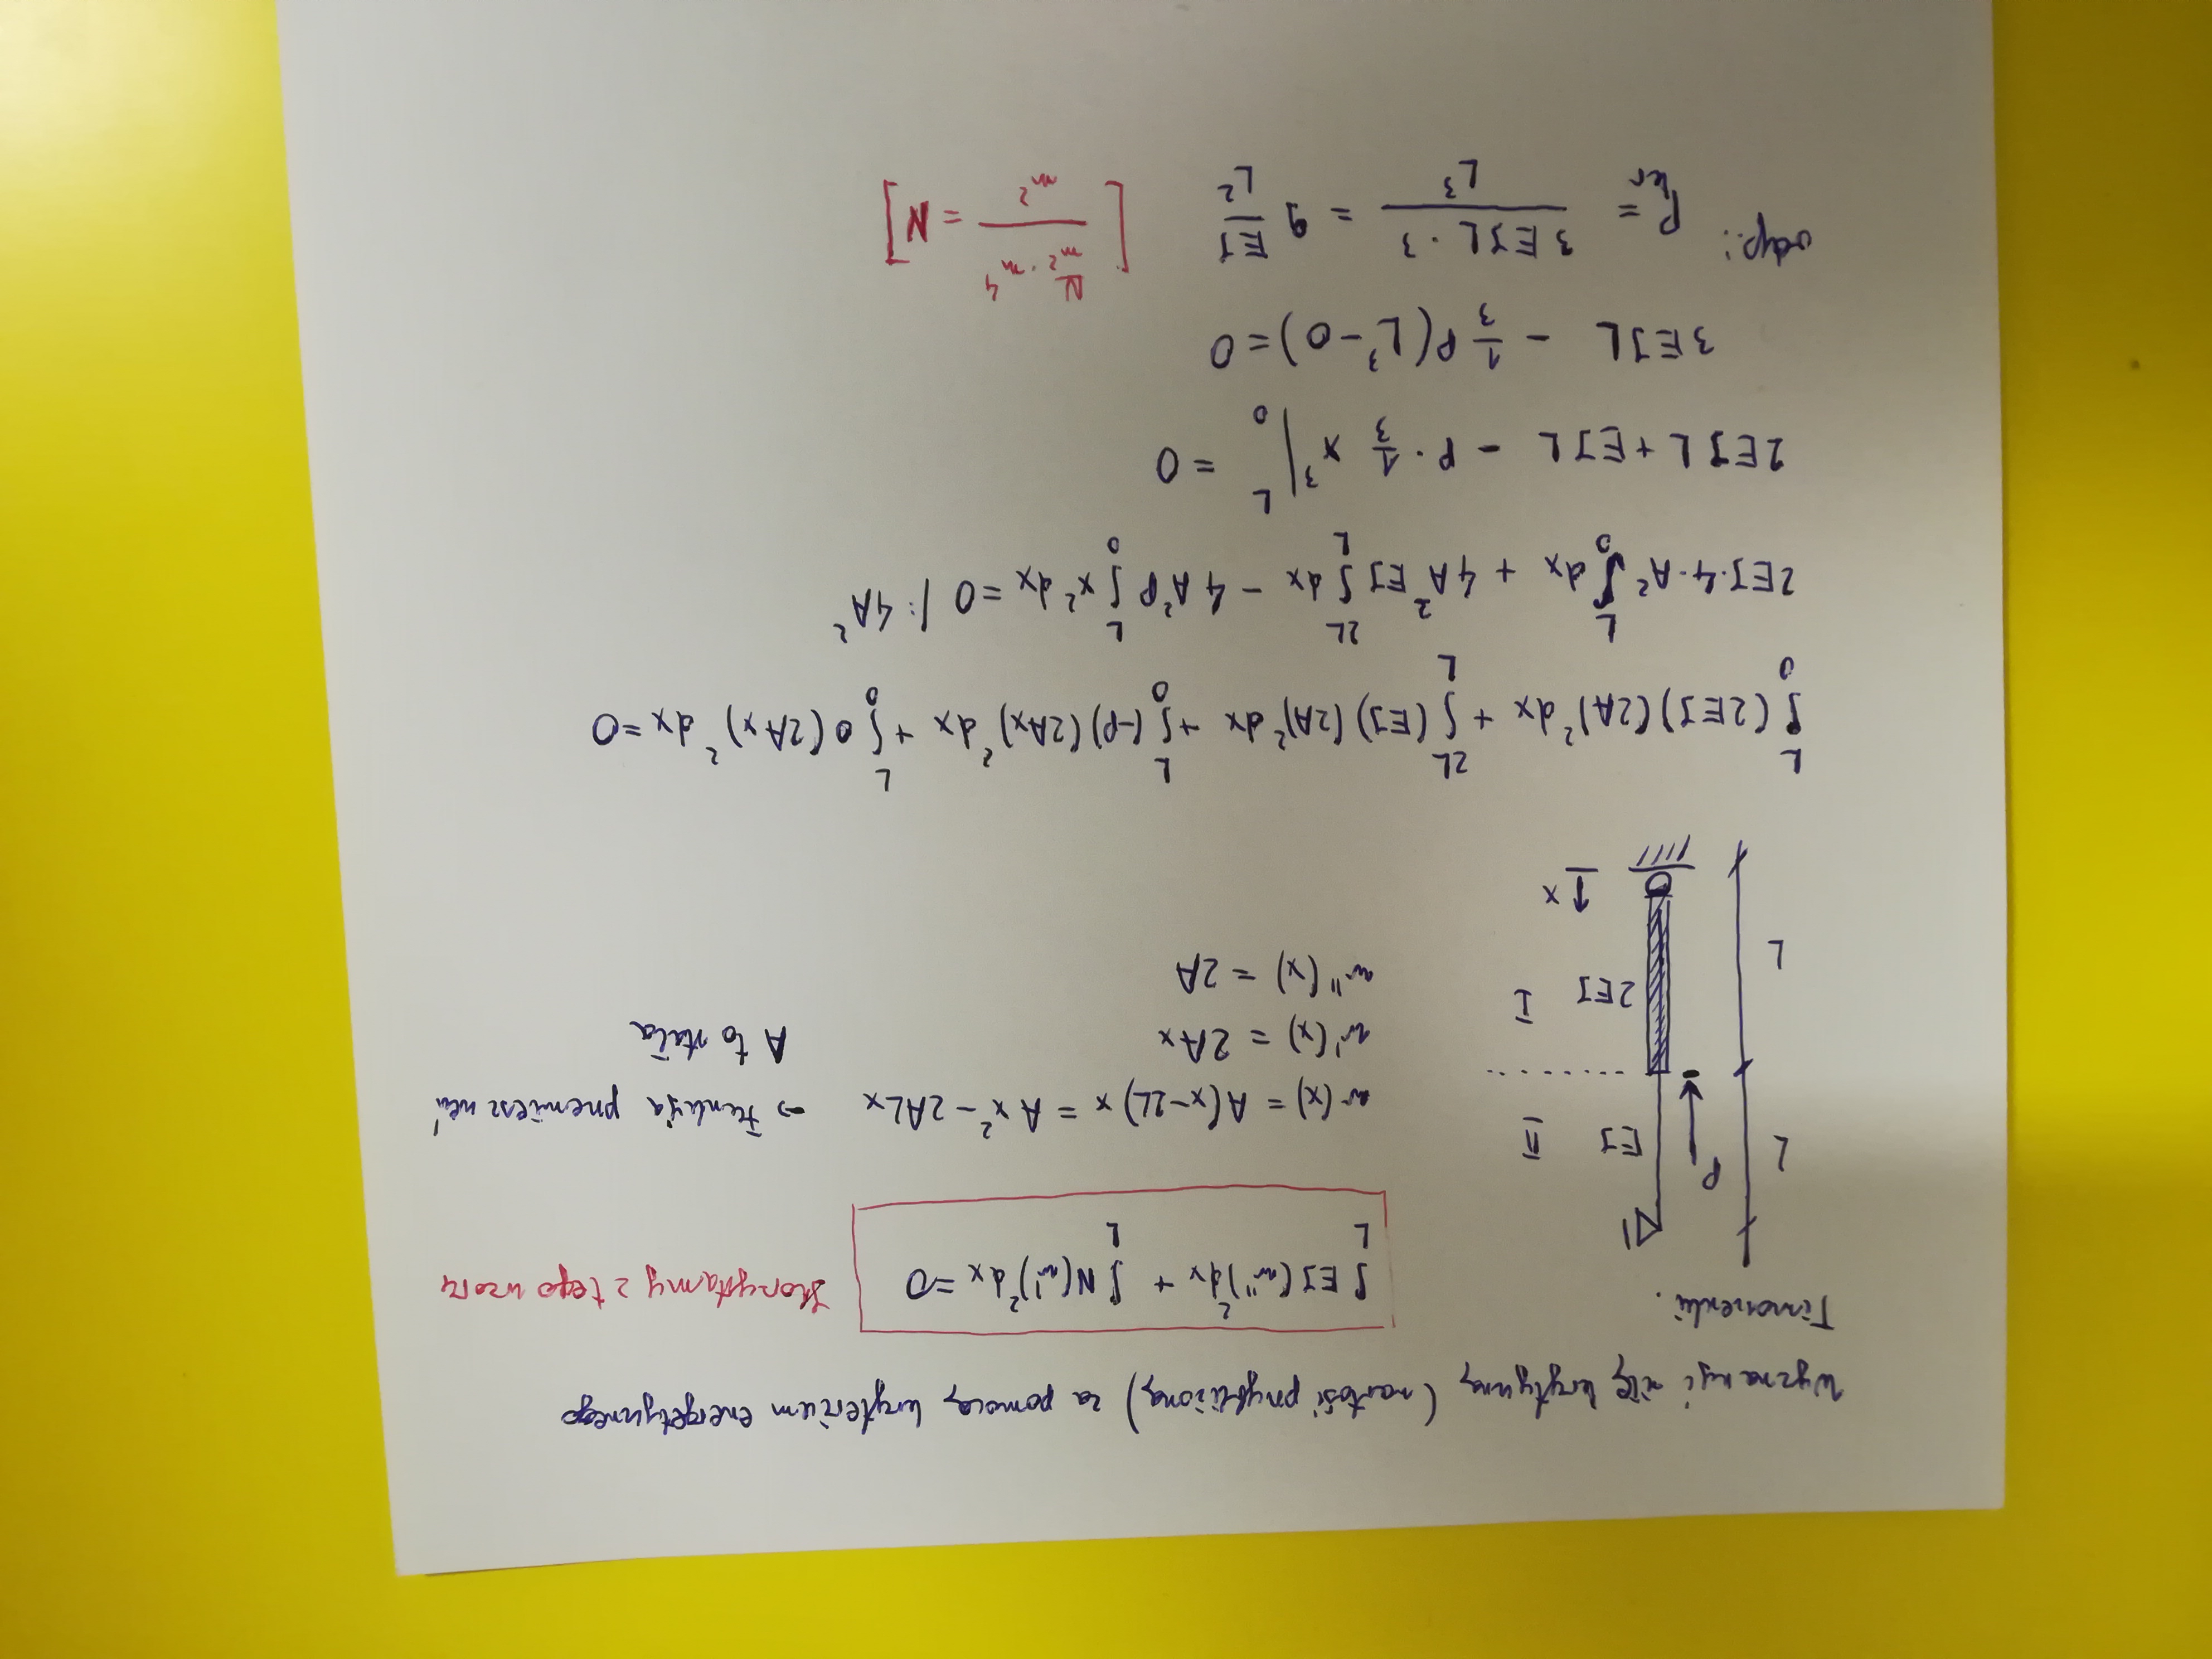 Wyznaczyć siłę krytyczną (wartość przybliżoną) za pomocą kryterium energetycznego
Timoszenki.
∫_L EJ(w'')² dx + ∫_L N(w')² dx = 0 Korzystamy z tego wzoru
P
L EJ II
w(x) = A(x-2L)x = Ax² - 2ALx → funkcja przemieszczeń!
w'(x) = 2Ax A to stała
L 2EJ I
w''(x) = 2A
x
∫_0^L (2EJ)(2A)² dx + ∫_L^{2L} (EJ)(2A)² dx + ∫_0^L (-P)(2Ax)² dx + ∫_0^L 0(2Ax)² dx = 0
2EJ·4·A² ∫_0^L dx + 4A² EJ ∫_L^{2L} dx - 4A²P ∫_0^L x² dx = 0 /: 4A²
2EJL + EJL - P · 1/3 x³ |_0^L = 0
3EJL - 1/3 P(L³-0) = 0
odp.: P_kr = 3EJL·3 / L³ = 9 EJ/L² [ N/m² · m⁴ / m² = N ]